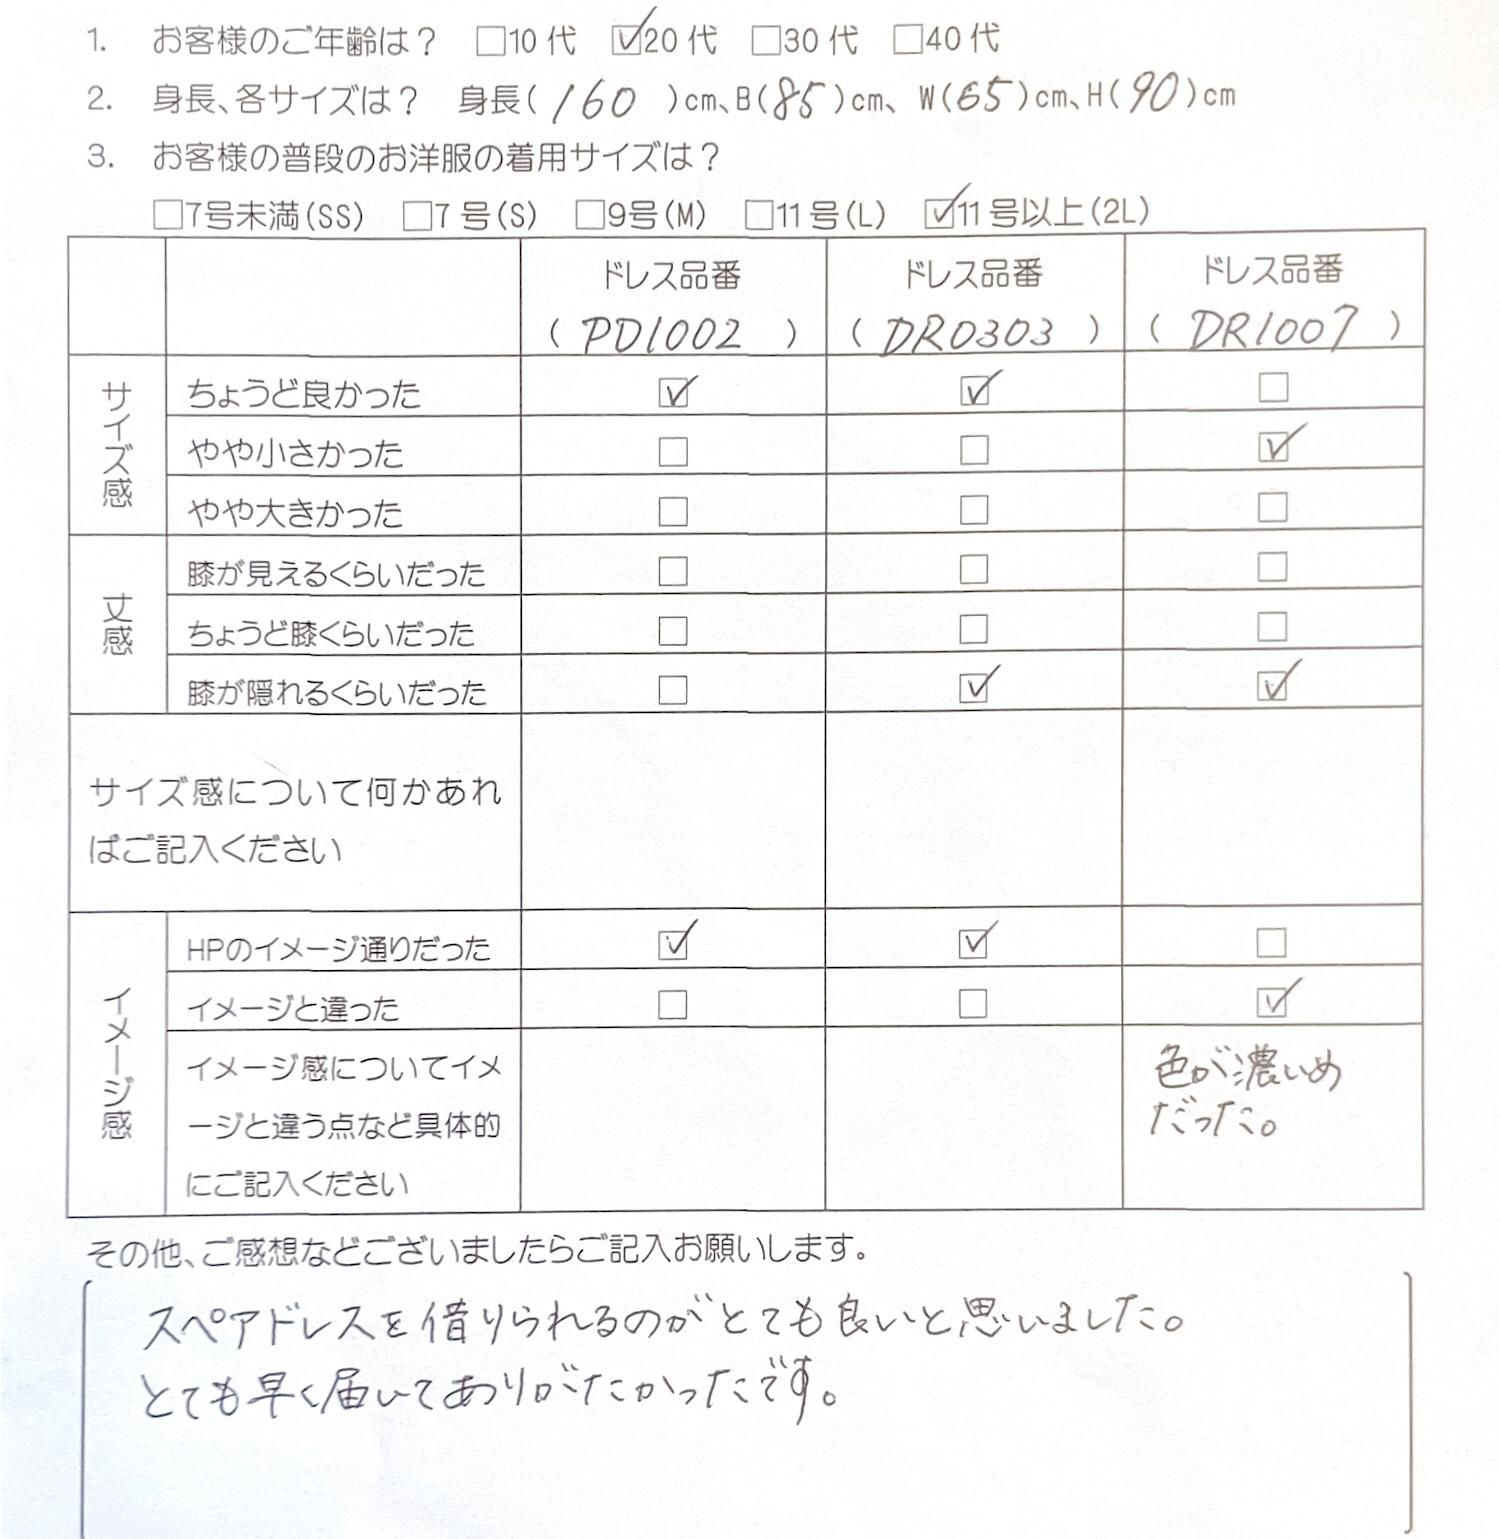 1. お客様のご年齢は？ □10代 ☑20代 □30代 □40代
2. 身長、各サイズは？ 身長(160)cm、B(85)cm、W(65)cm、H(90)cm
3. お客様の普段のお洋服の着用サイズは？
□7号未満(SS) □7号(S) □9号(M) □11号(L) ☑11号以上(2L)
ドレス品番 ドレス品番 ドレス品番
(PD1002) (DR0303) (DR1007)
サイズ感
ちょうど良かった ☑ ☑ □
やや小さかった □ □ ☑
やや大きかった □ □ □
丈感
膝が見えるくらいだった □ □ □
ちょうど膝くらいだった □ □ □
膝が隠れるくらいだった □ ☑ ☑
サイズ感について何かあれ
ばご記入ください
イメージ感
HPのイメージ通りだった ☑ ☑ □
イメージと違った □ □ ☑
イメージ感についてイメ
ージと違う点など具体的
にご記入ください
色が濃いめ
だった。
その他、ご感想などございましたらご記入お願いします。
スペアドレスを借りられるのがとても良いと思いました。
とても早く届いてありがたかったです。